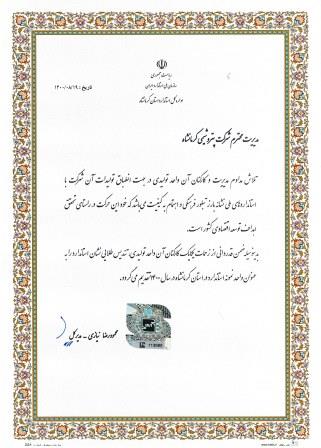 ریاست جمهوری
سازمان ملی استاندارد ایران
اداره کل استاندارد استان کرمانشاه
تاریخ: ۱۴۰۰/۰۸/۱۹
مدیریت محترم شرکت پتروشیمی کرمانشاه
تلاش مداوم مدیریت و کارکنان آن واحد تولیدی در جهت انطباق تولیدات آن شرکت با
استانداردهای ملی نشانه بارز تبلور فرهنگی و اهتمام به کیفیت می باشد که خود این حرکت در راستای تحقق
اهداف توسعه اقتصادی کشور است.
بدینوسیله ضمن قدردانی از زحمات یکایک کارکنان آن واحد تولیدی، تندیس طلایی نشان استاندارد را به
عنوان واحد نمونه استاندارد در استان کرمانشاه در سال ۱۴۰۰ تقدیم می گردد.
محمودرضا نیازی - مدیرکل